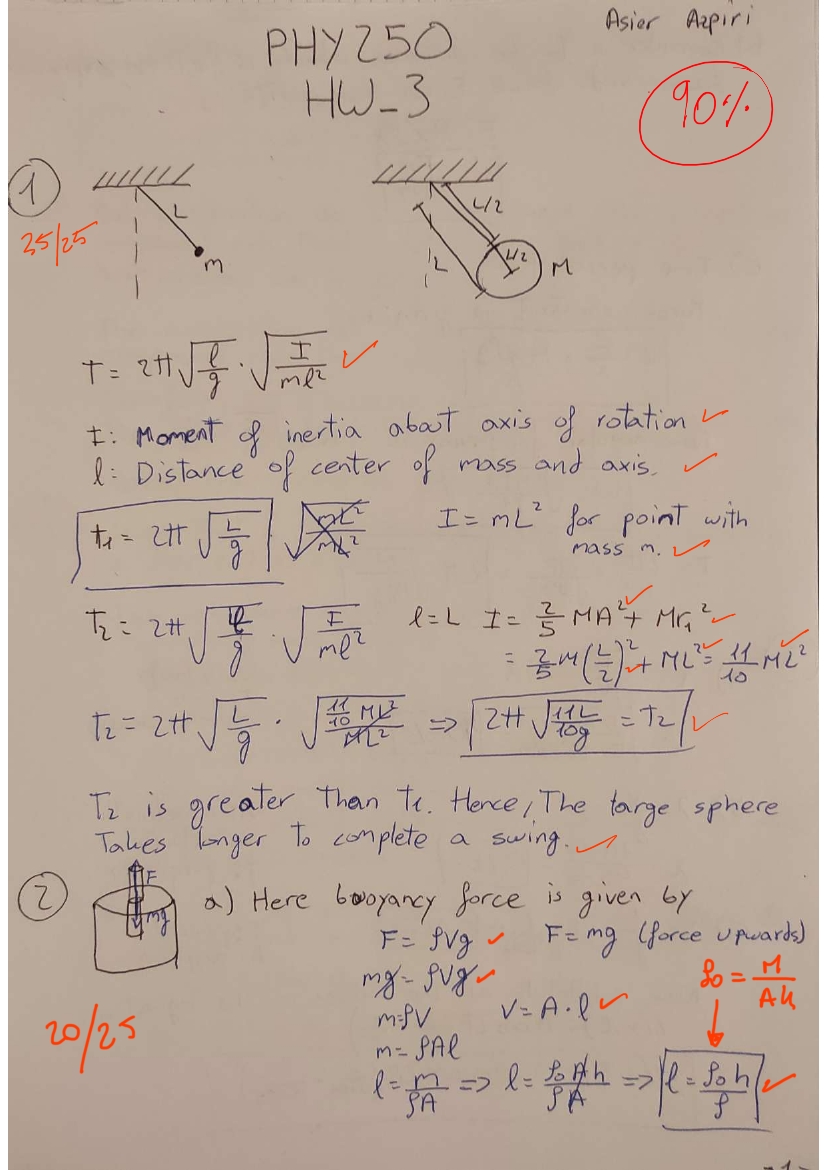 Asier Azpiri
PHY250
HW_3
90%
1
35/25
L
m
L/2
L/2
L
M
T = 2π√(l/g) · √(I/ml²) ✓
I: Moment of inertia about axis of rotation ✓
l: Distance of center of mass and axis. ✓
t₁ = 2π √(L/g) √(mL²/mL²) I = mL² for point with
mass m. ✓
T₂ = 2π√(l/g) · √(I/ml²) l=L I = 2/5 MA² ✓ + Mr₁² ✓
= 2/5 M(L/2)² ✓ + ML² ✓ = 11/10 ML² ✓
T₂ = 2π √(L/g) · √(11/10 ML²/ML²) ⇒ 2π √(11L/10g) = T₂ ✓
T₂ is greater Than t₁. Hence, The large sphere
Takes longer to complete a swing. ✓
2
F
mg
a) Here buoyancy force is given by
F = ρVg ✓ F = mg (force upwards)
mg = ρVg ✓
ρ₀ = M/Ah
m = ρV V = A · l ✓
m = ρAl
20/25
l = m/ρA ⇒ l = ρ₀Ah/ρA ⇒ l = ρ₀h/ρ ✓
-1-